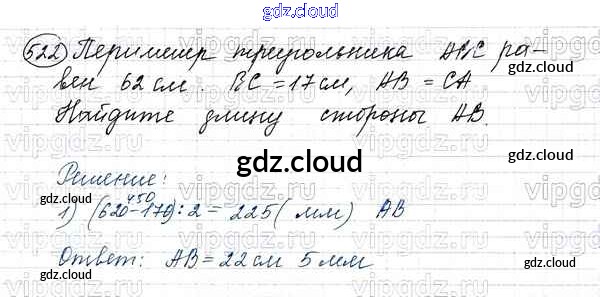 gdz.cloud
522 Периметр треугольника ABC ра-
вен 62 см. BC = 17 см, AB = CA
Найдите длину стороны AB.
gdz.cloud
Решение:
450
1) (620-170):2 = 225 (мм) AB
gdz.cloud gdz.cloud
Ответ: AB = 22 см 5 мм
gdz.cloud